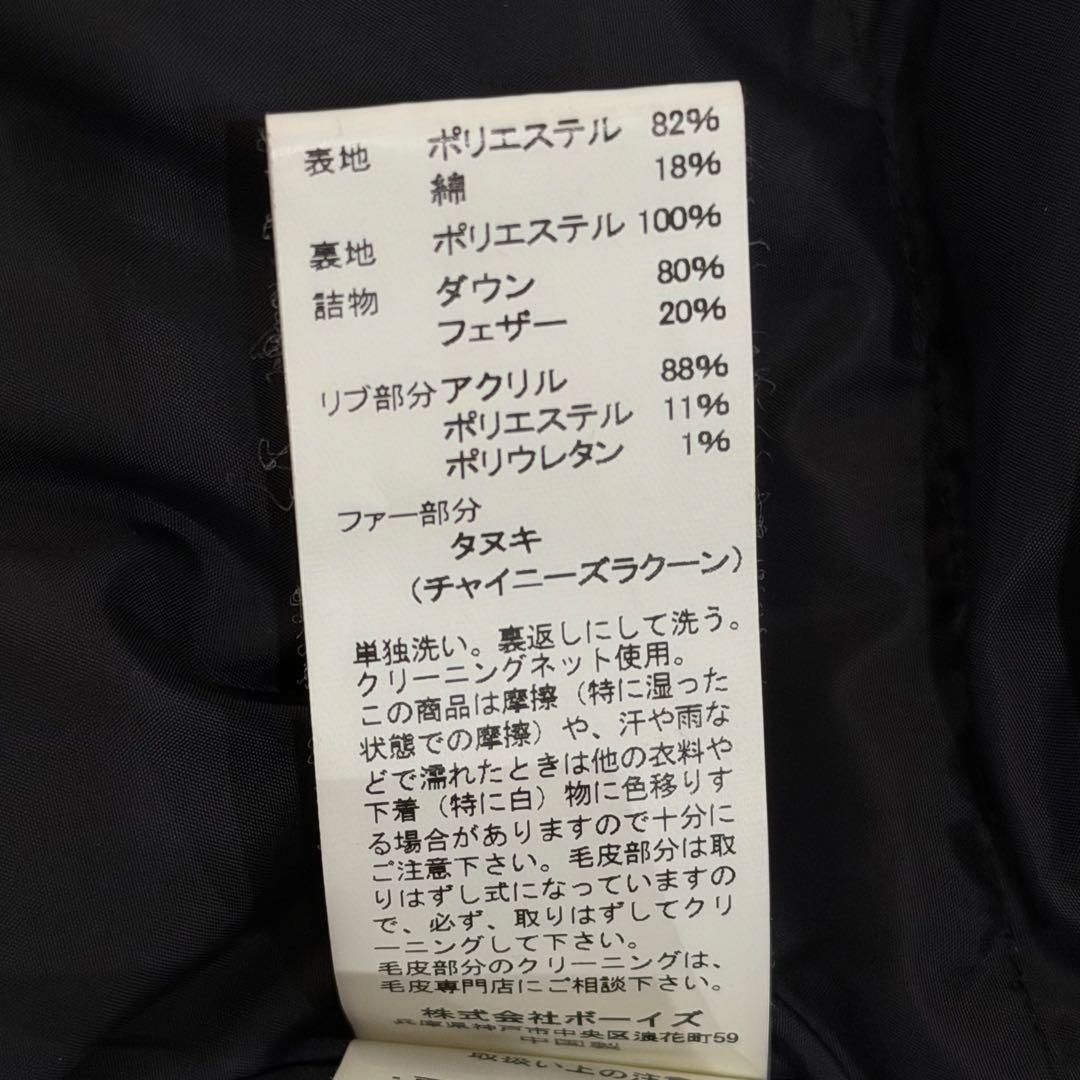 表地 ポリエステル 82%
綿 18%
裏地 ポリエステル 100%
詰物 ダウン 80%
フェザー 20%
リブ部分 アクリル 88%
ポリエステル 11%
ポリウレタン 1%
ファー部分
タヌキ
(チャイニーズラクーン)
単独洗い。裏返しにして洗う。
クリーニングネット使用。
この商品は摩擦(特に湿った
状態での摩擦)や、汗や雨な
どで濡れたときは他の衣料や
下着(特に白)物に色移りす
る場合がありますので十分に
ご注意下さい。毛皮部分は取
りはずし式になっていますの
で、必ず、取りはずしてクリ
ーニングして下さい。
毛皮部分のクリーニングは、
毛皮専門店にご相談下さい。
株式会社ボーイズ
兵庫県神戸市中央区浪花町59
中国製
取扱い上の注意